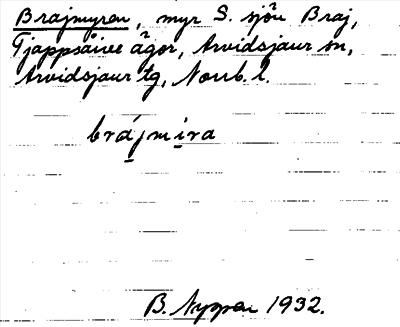 Brajmyren, myr S. sjön Braj,
Tjappsåive ägor, Arvidsjaur sn,
Arvidsjaur tg, Norrb. l.
brájmira
B. Nyppen 1932.